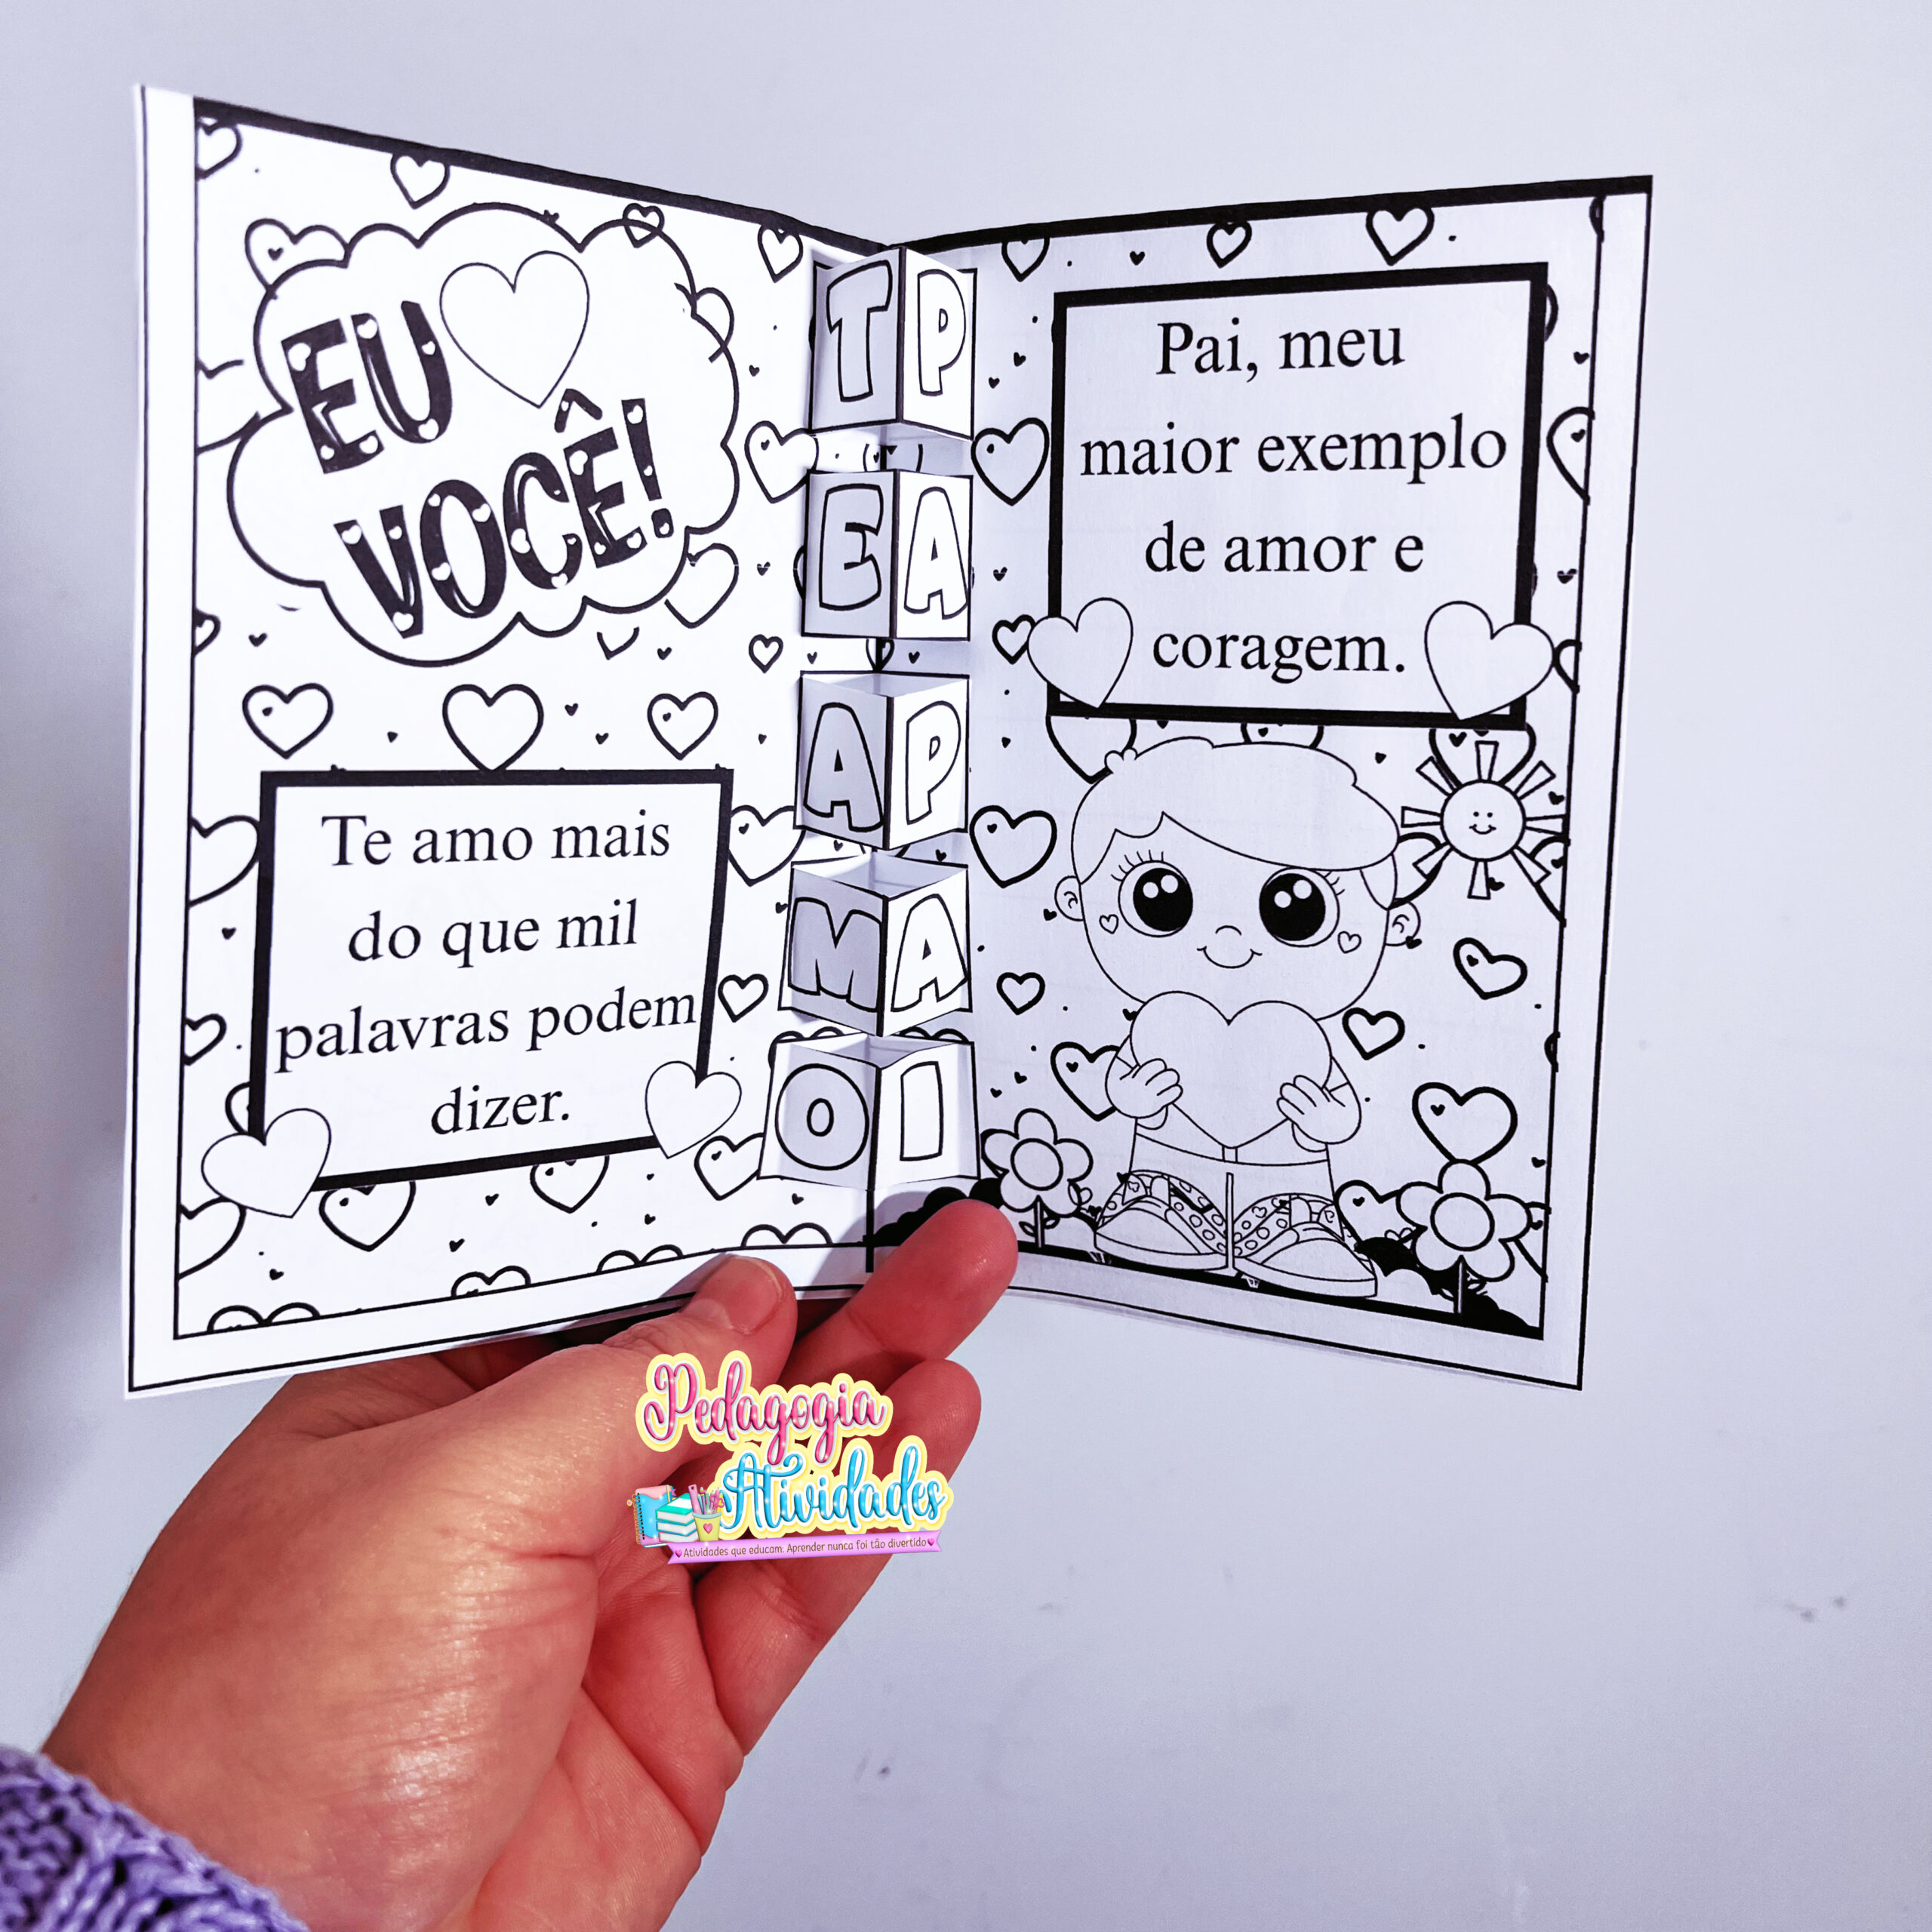 EU
VOCÊ!
Te amo mais
do que mil
palavras podem
dizer.
T P
E A
A P
M A
O I
Pai, meu
maior exemplo
de amor e
coragem.
Pedagogia
Atividades
Atividades que educam. Aprender nunca foi tão divertido